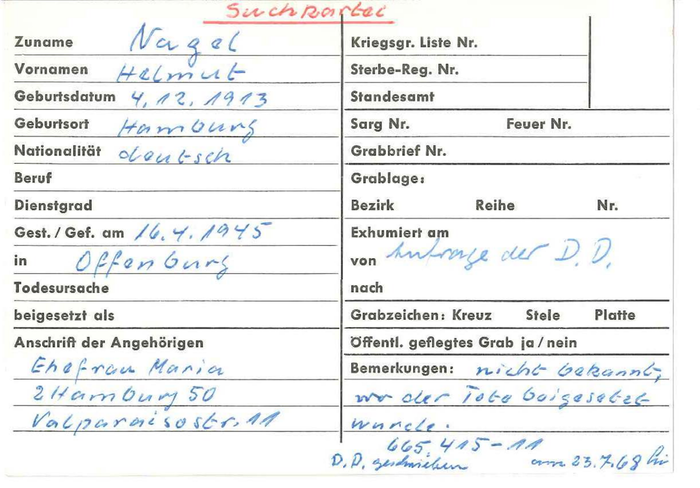 Suchkartei
Zuname Nagel
Vornamen Helmut
Geburtsdatum 4.12.1913
Geburtsort Hamburg
Nationalität deutsch
Beruf
Dienstgrad
Gest./Gef. am 16.4.1945
in Offenburg
Todesursache
beigesetzt als
Anschrift der Angehörigen
Ehefrau Maria
2 Hamburg 50
Valparaisostr. 11
Kriegsgr. Liste Nr.
Sterbe-Reg. Nr.
Standesamt
Sarg Nr. Feuer Nr.
Grabbrief Nr.
Grablage:
Bezirk Reihe Nr.
Exhumiert am
von Anfrage der D.D.
nach
Grabzeichen: Kreuz Stele Platte
Öffentl. gepflegtes Grab ja/nein
Bemerkungen: nicht bekannt,
wo der Tote beigesetzt
wurde.
665.415-11
D.D. geschrieben am 23.7.68